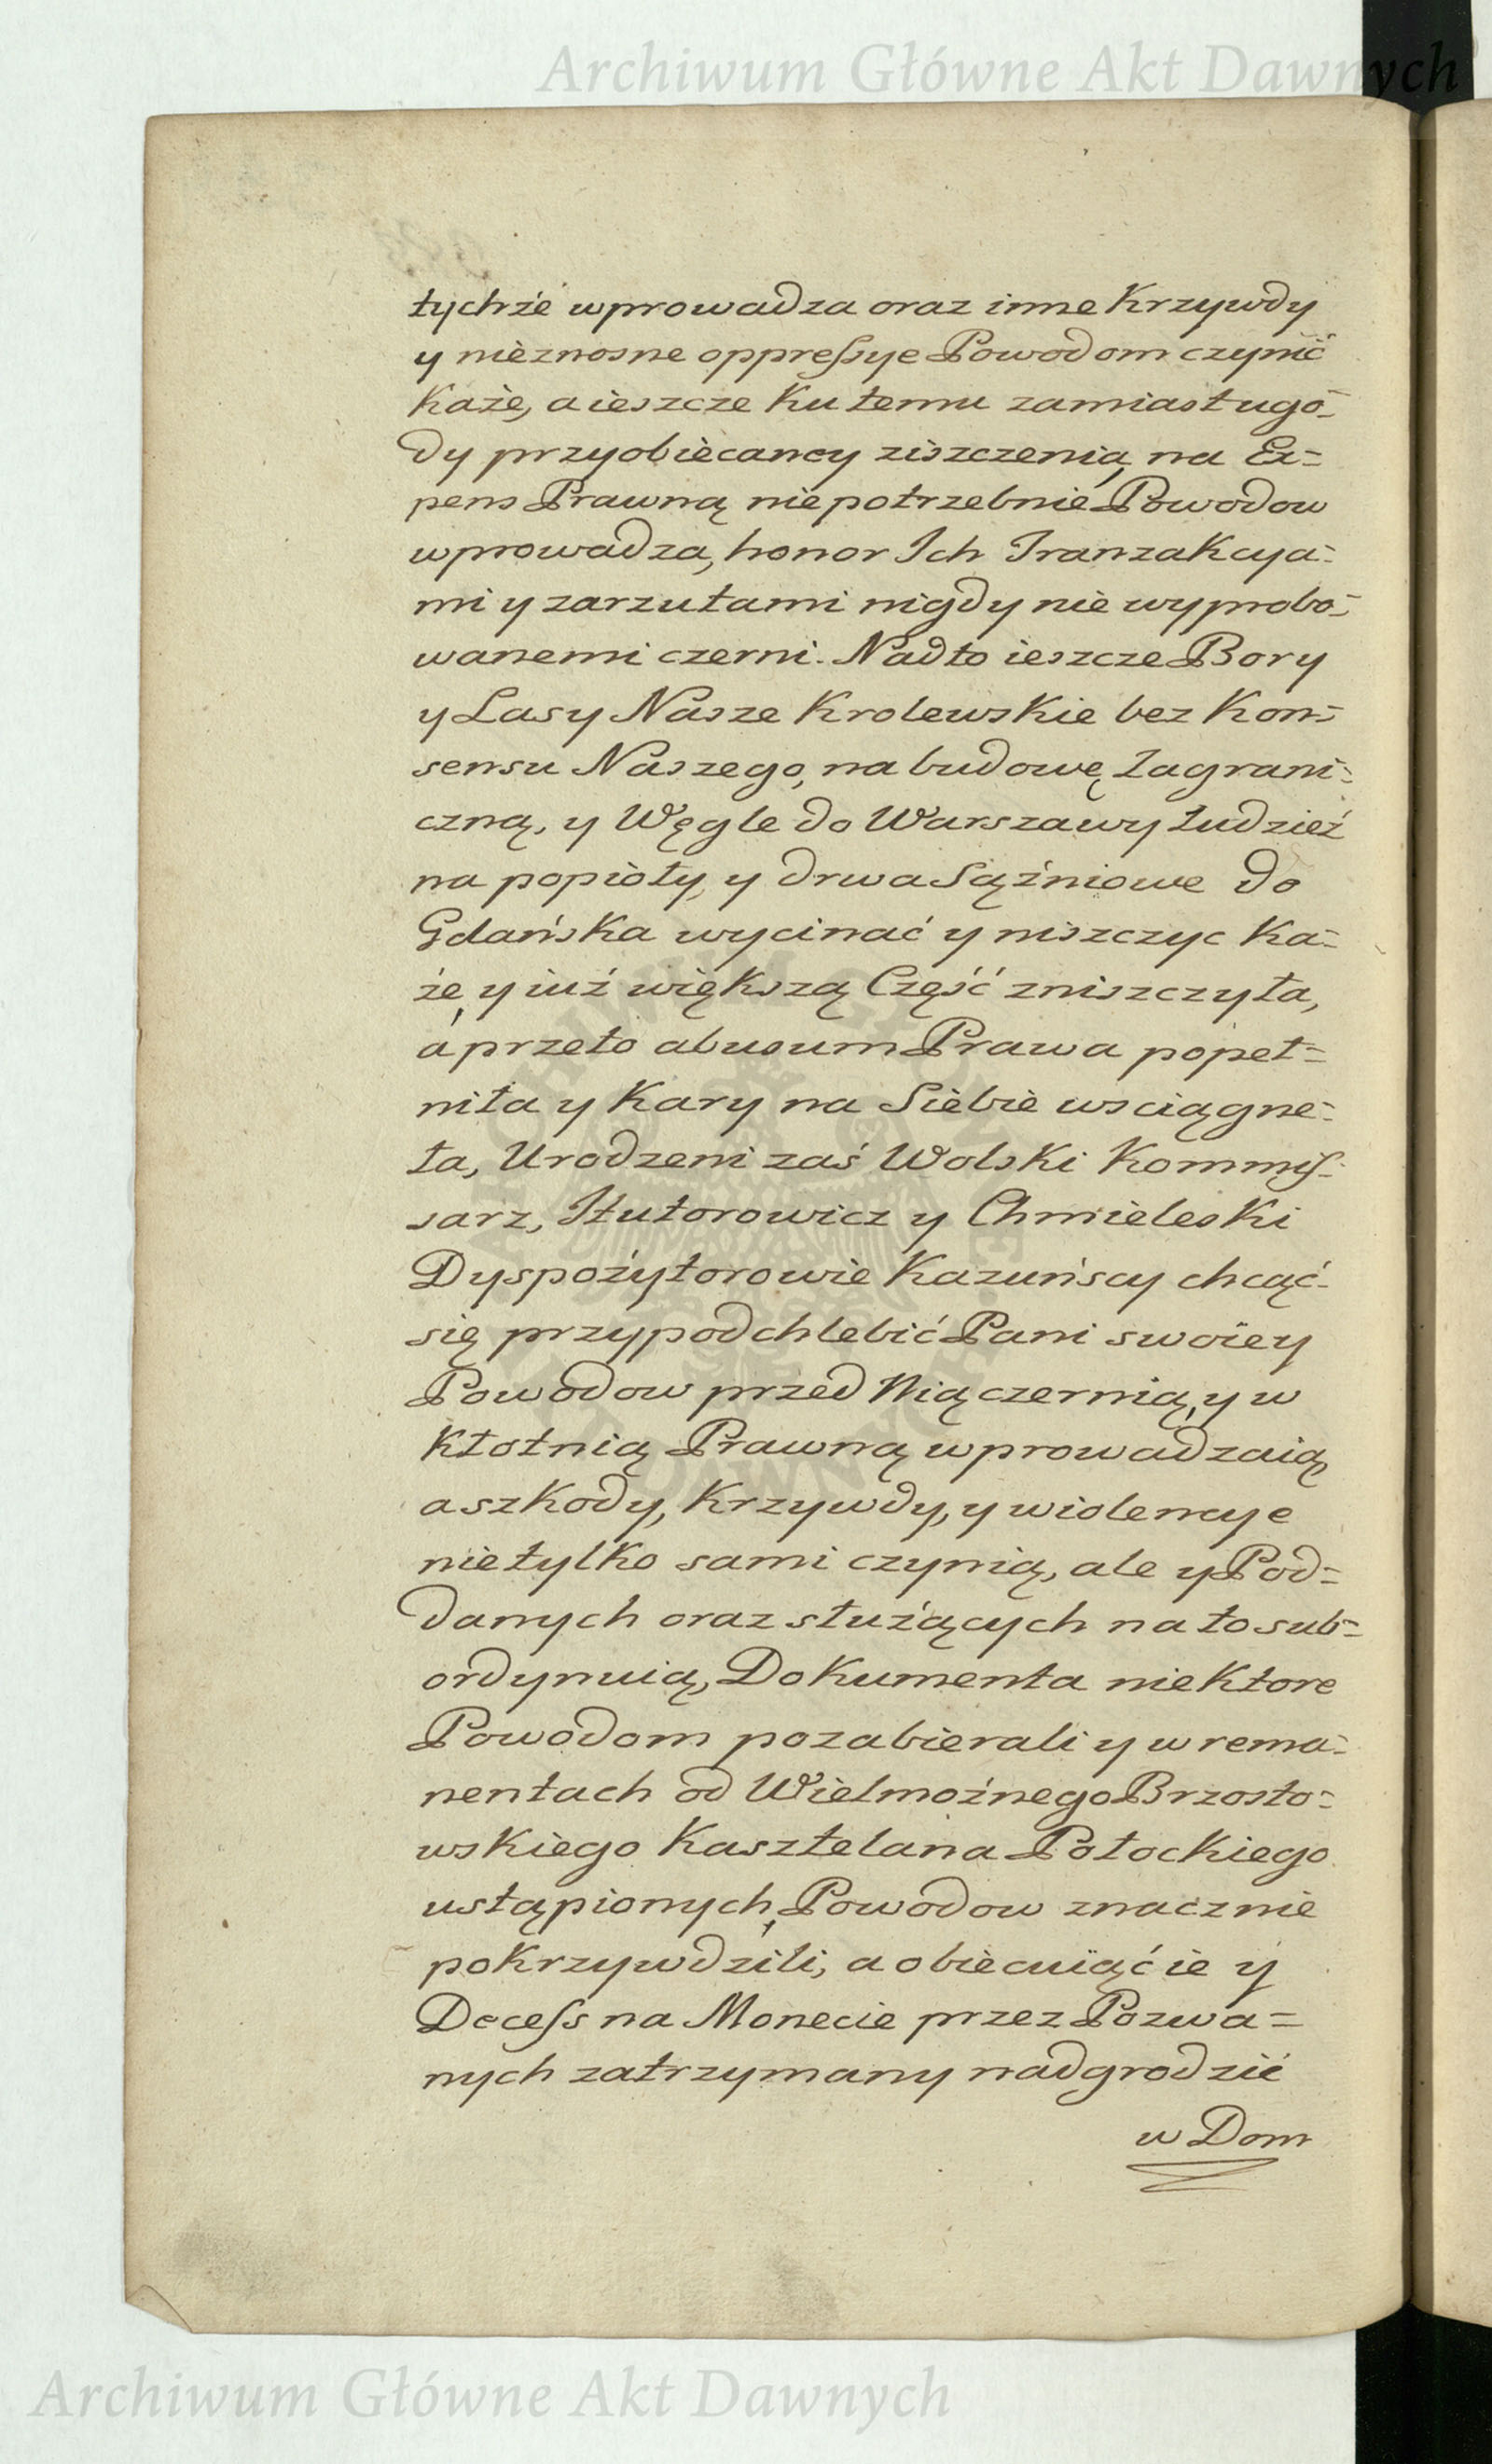 Archiwum Główne Akt Dawnych
tychże wprowadza oraz inne Krzywdy
y nieznosne oppressye Powodom czynić
Każe, a ieszcze Ku temu zamiast ugo=
dy przyobiecaney ziszczenia, na Ex=
pens Prawną niepotrzebnie Powodow
wprowadza, honor Ich Tranzakcya=
mi y zarzutami nigdy nie wyprobo=
wanemi czerni. Nadto ieszcze Bory
y Lasy Nasze Krolewskie bez Kon=
sensu Naszego, na budowę Zagrani=
czną, y Węgle do Warszawy tudzież
na popioły, y drwa Sążniowe do
Gdańska wycinać y niszczyc Ka=
że, y iuż większą Część zniszczyła,
a przeto abusum Prawa popeł=
niła y Kary na Siebie wsciągne=
ła, Urodzeni zaś Wolski Kommis=
sarz, Hutorowicz y Chmieleski
Dyspozytorowie Kazuńscy chcąć
się przypodchlebić Pani swoiey
Powodow przed Nią czernią, y w
Kłotnią Prawną wprowadzaią
a szkody, Krzywdy, y wiolencye
nietylko sami czynią, ale y Pod=
danych oraz służących na to sub=
ordynuią, Dokumenta nieKtore
Powodom pozabierali y w rema=
nentach od Wielmożnego Brzosto=
wskiego Kasztelana Połockiego
ustąpionych, Powodow znacznie
pokrzywdzili, a obiecuiąć ie y
Decess na Monecie przez Pozwa=
nych zatrzymany nadgrodzić
w Dom
Archiwum Główne Akt Dawnych